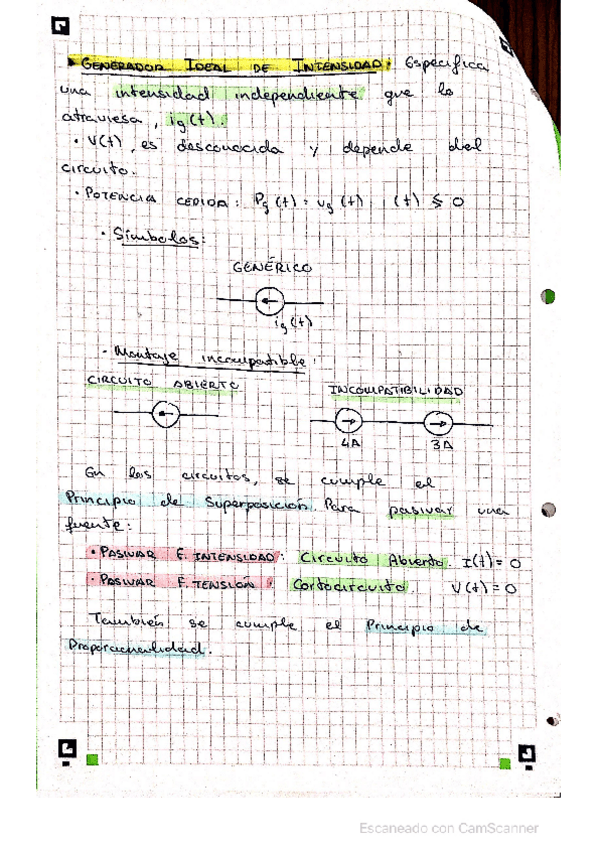 • GENERADOR IDEAL DE INTENSIDAD: Especifica
una intensidad independiente que lo
atraviesa, ig(t).
• V(t), es desconocida y depende del
circuito.
• POTENCIA CEDIDA: Pg(t) = vg(t) i(t) ≶ 0
• Símbolos:
GENÉRICO
ig(t)
• Montaje incompatible:
CIRCUITO ABIERTO INCOMPATIBILIDAD
4A 3A
En los circuitos, se cumple el
Principio de Superposición. Para pasivar una
fuente:
• PASIVAR F. INTENSIDAD: Circuito Abierto. I(t) = 0
• PASIVAR F. TENSIÓN: Cortocircuito. V(t) = 0
También se cumple el Principio de
Proporcionalidad.
Escaneado con CamScanner